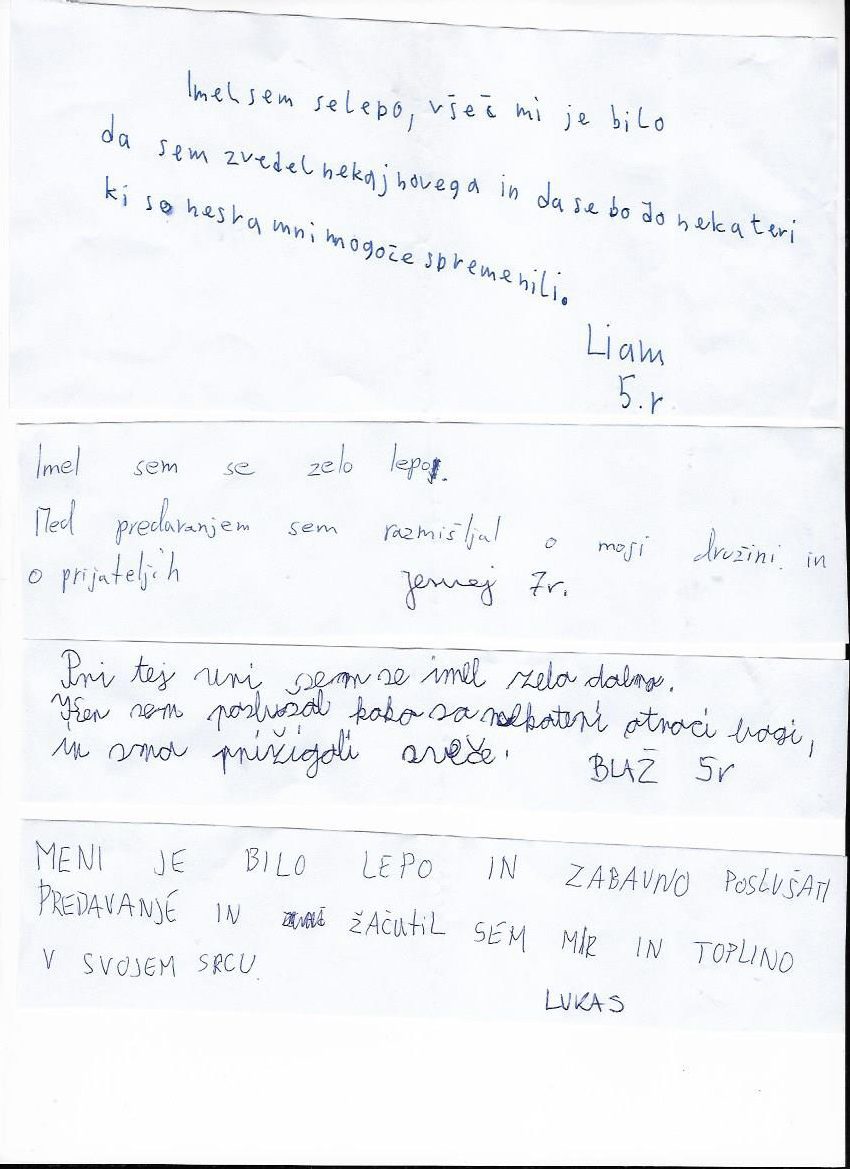 Imel sem se lepo, všeč mi je bilo
da sem zvedel nekaj novega in da se bodo nekateri
ki so nesramni mogoče spremenili.
Liam
5. r
Imel sem se zelo lepo.
Med predavanjem sem razmišljal o moji družini in
o prijateljih
Jernej 7r.
Pri tej uri sem se imel zelo dobro.
sem poslušal kako so nekateri otroci bogi,
in smo prižigali sveče.
BLAŽ 5r
MENI JE BILO LEPO IN ZABAVNO POSLUŠATI
PREDAVANJE IN ŽAČUTIL SEM MIR IN TOPLINO
V SVOJEM SRCU.
LUKAS